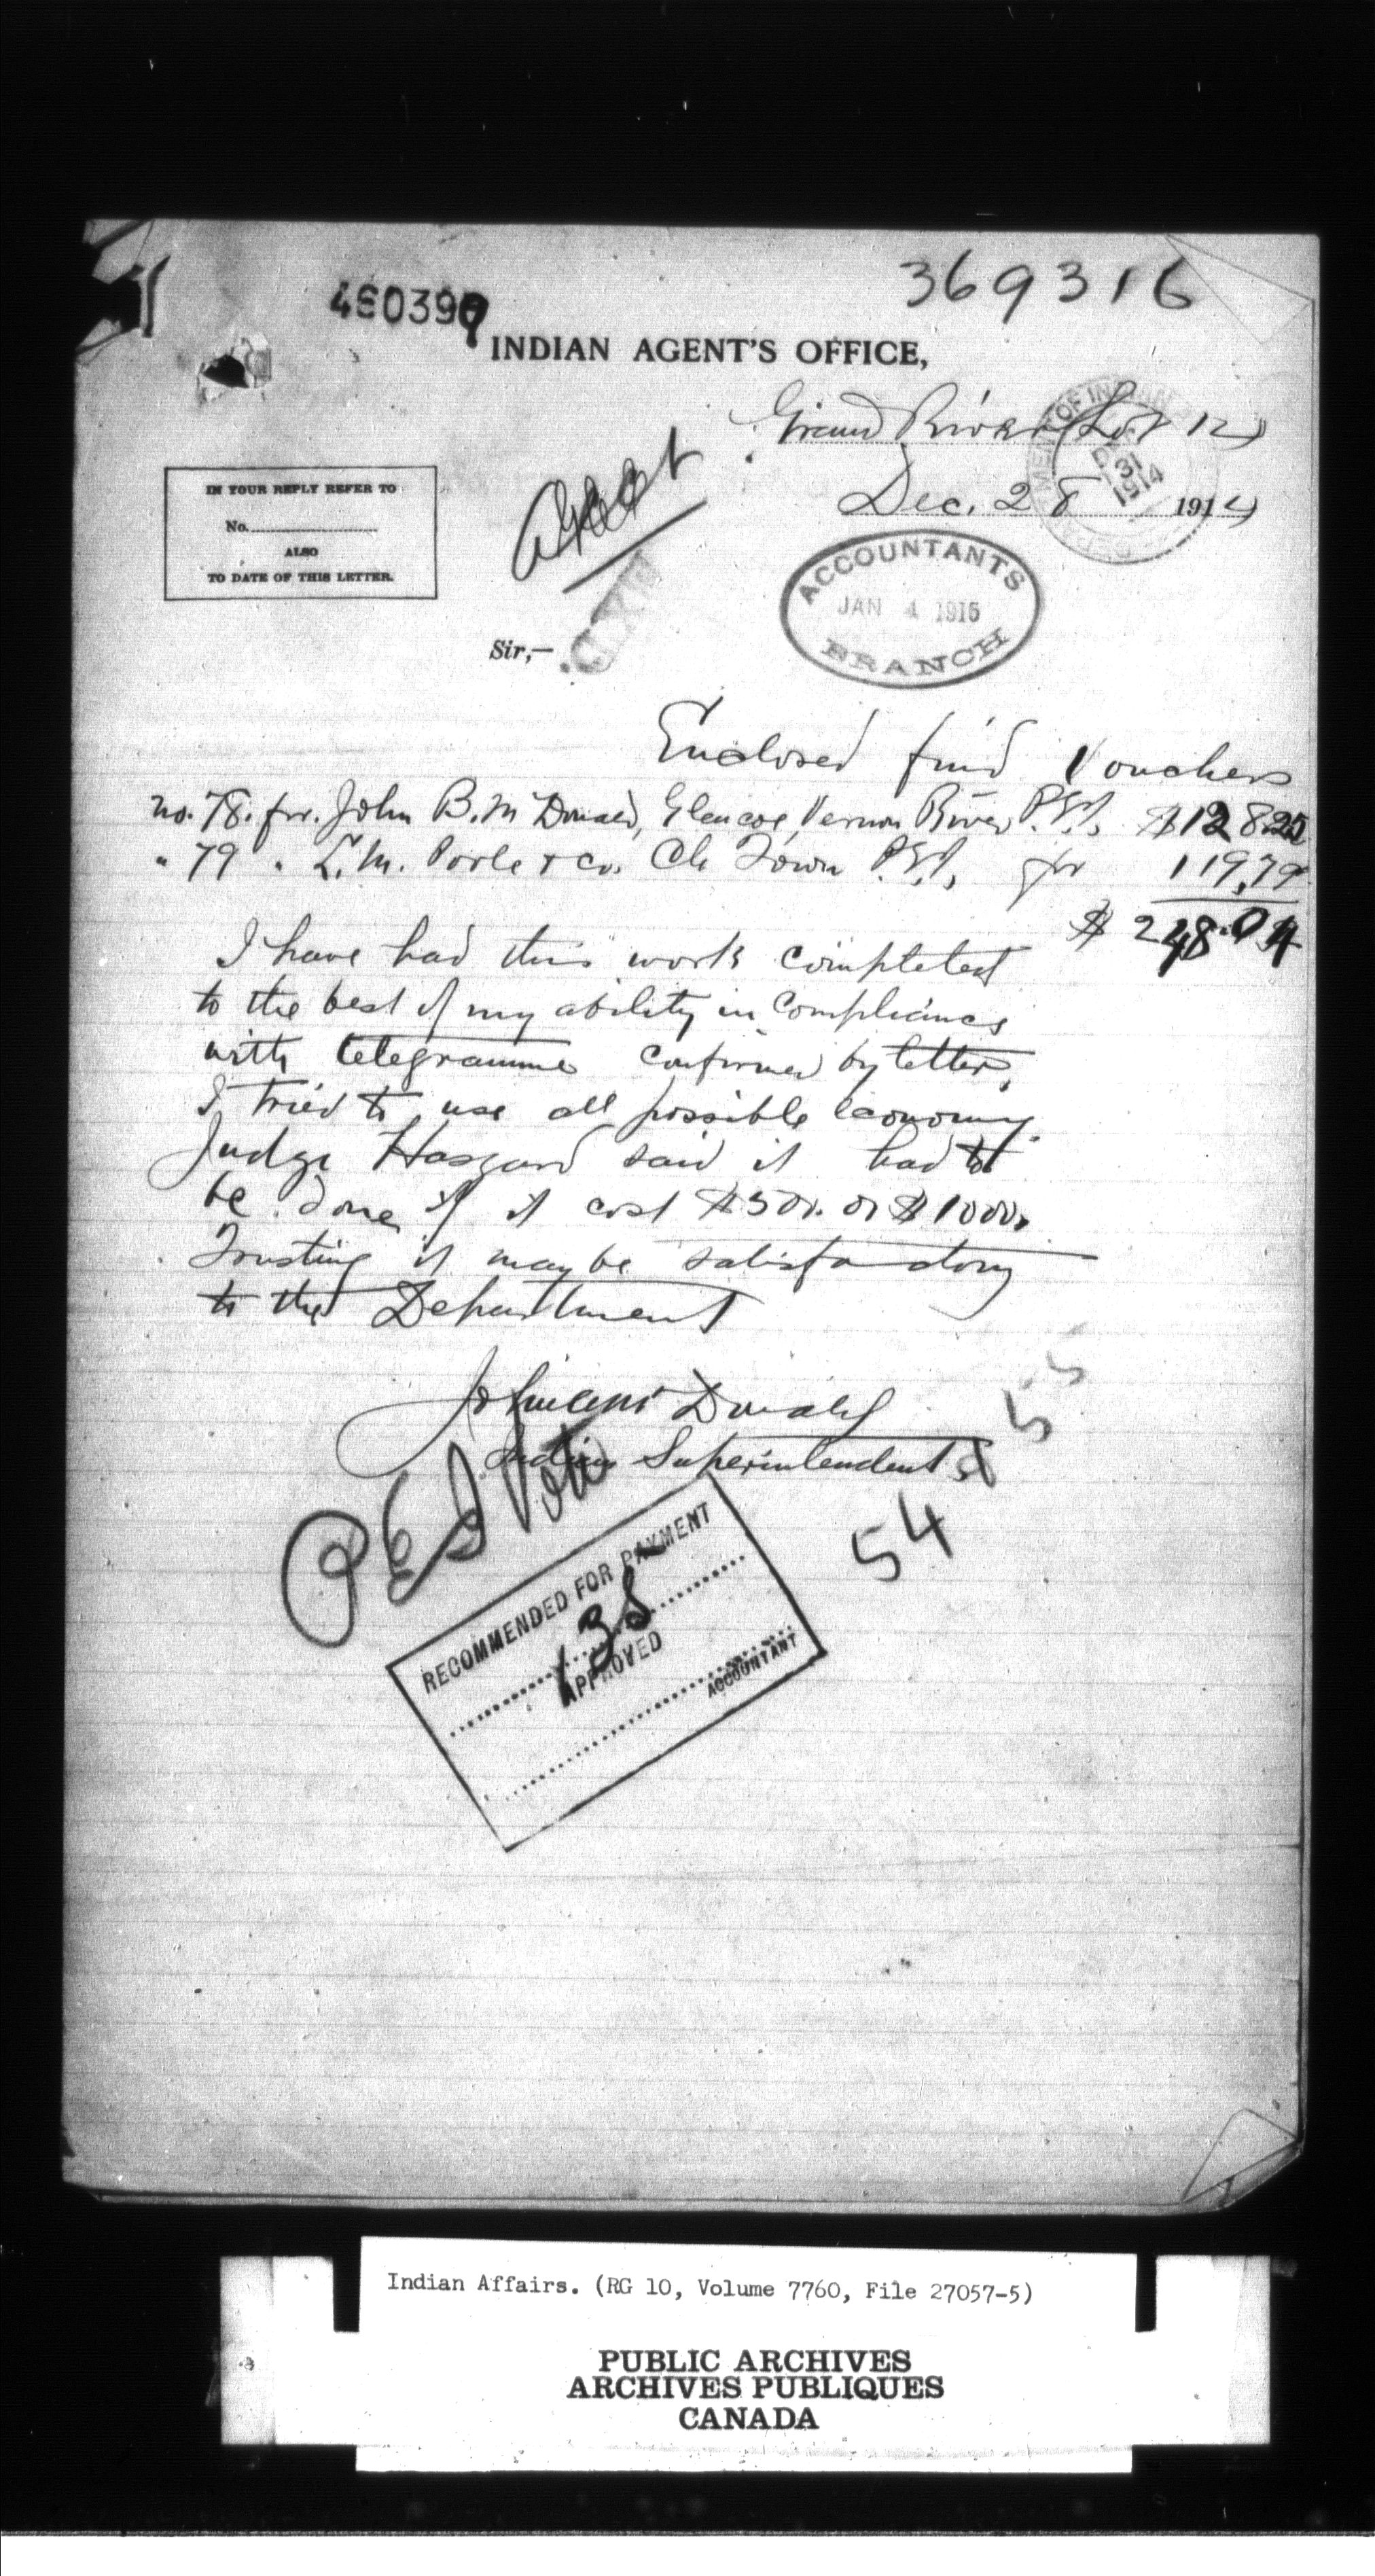 369316
460399
INDIAN AGENT'S OFFICE,
Grand River (Lot 14)
DEC 31 1914
Dec. 28 1914
IN YOUR REPLY REFER TO
No.
ALSO
TO DATE OF THIS LETTER.
ACCOUNTANTS
JAN 4 1915
BRANCH
Sir,—
Enclosed find Vouchers
no. 78. fr. John B. McDonald, Glencoe, Vernon River P.E.I. $128.25
" 79 " L. M. Poole & co. Ch Town P.E.I, for 119.79
$ 248.04
I have had this work completed
to the best of my ability in compliance
with telegramme confirmed by letter,
I tried to use all possible economy.
Judge Haszard said it had to
be done if it cost $500. or $1000.
Trusting it may be satisfactory
to the Department
John A McDonald
Indian Superintendent
55
54
P E I Vote
RECOMMENDED FOR PAYMENT
138
APPROVED
ACCOUNTANT
Indian Affairs. (RG 10, Volume 7760, File 27057-5)
PUBLIC ARCHIVES
ARCHIVES PUBLIQUES
CANADA